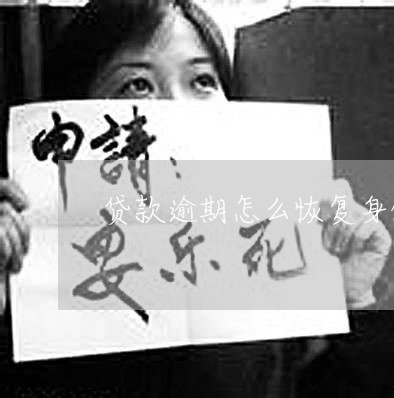 申請：
贷款逾期怎么恢复身
安乐死